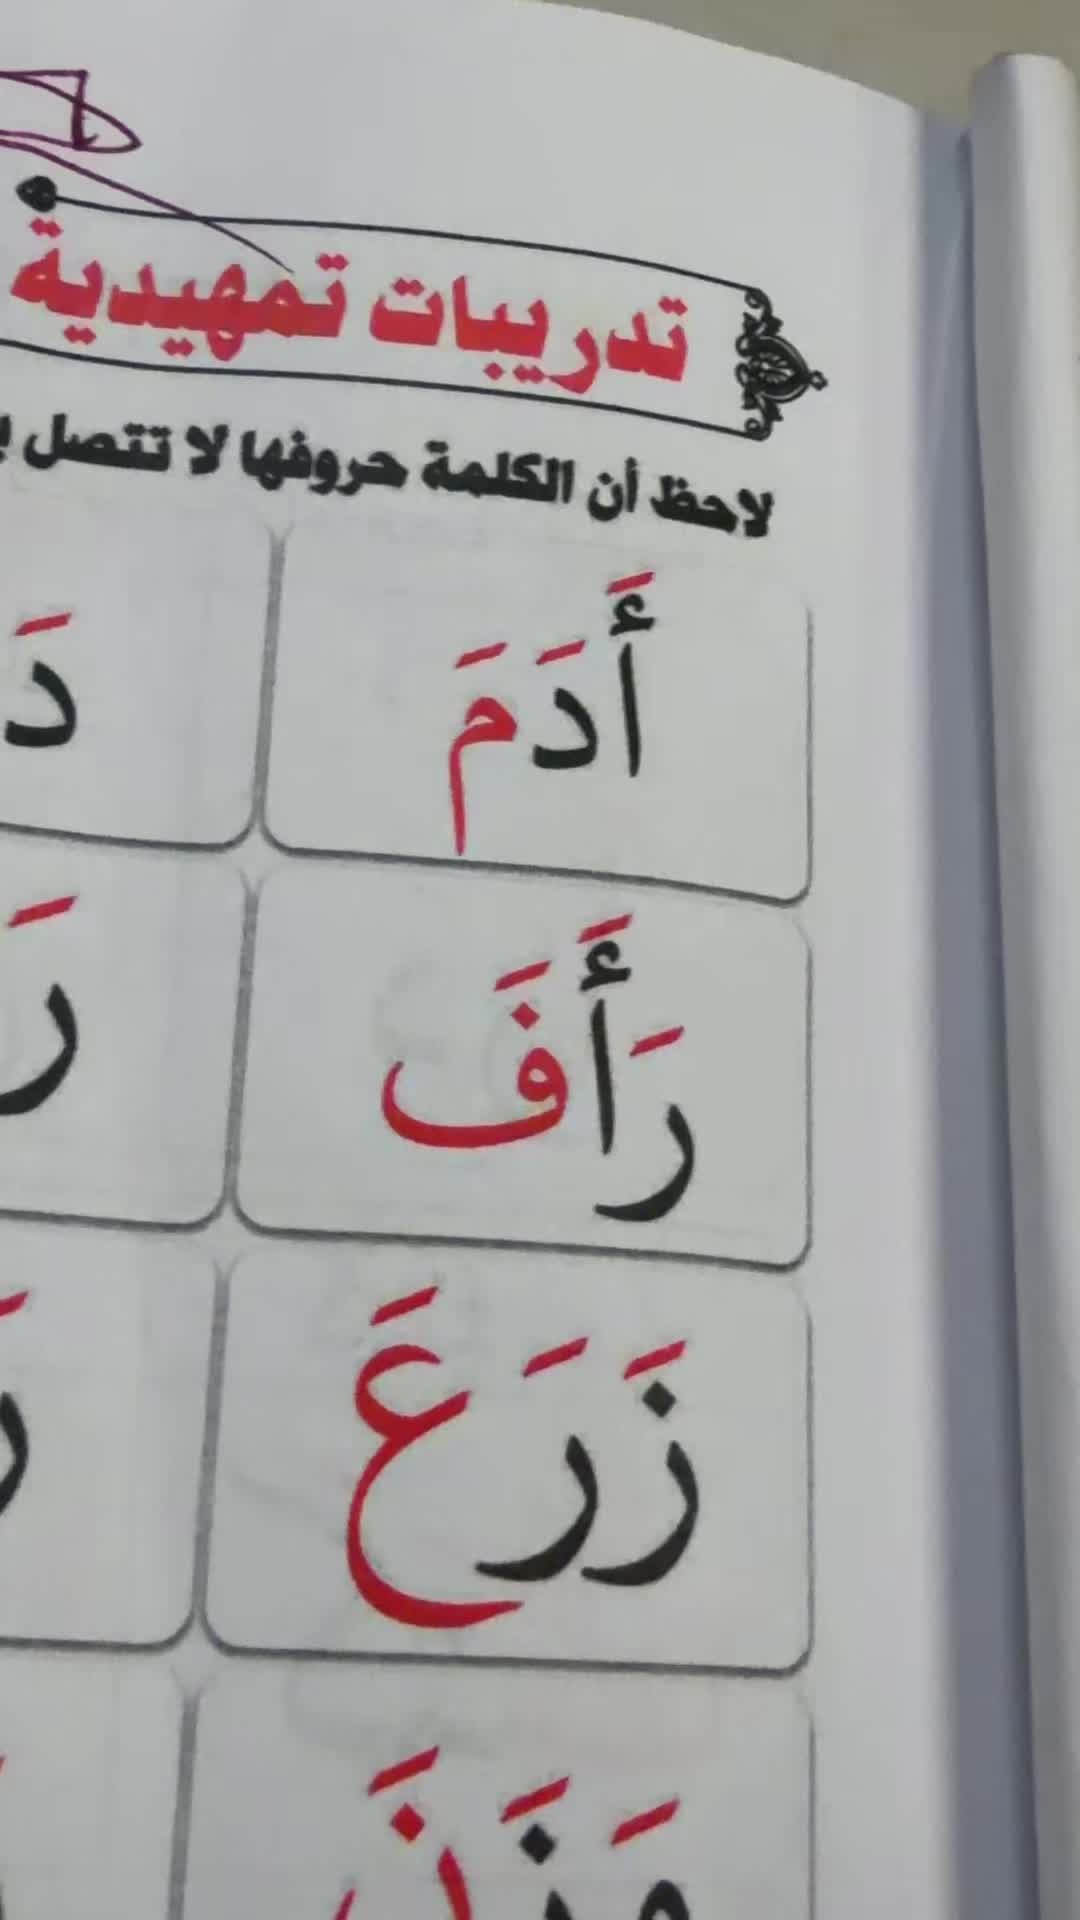 تدريبات تمهيدية
لاحظ أن الكلمة حروفها لا تتصل
أَدَمَ دَ
رَأَفَ رَ
زَرَعَ
وَزَنَ